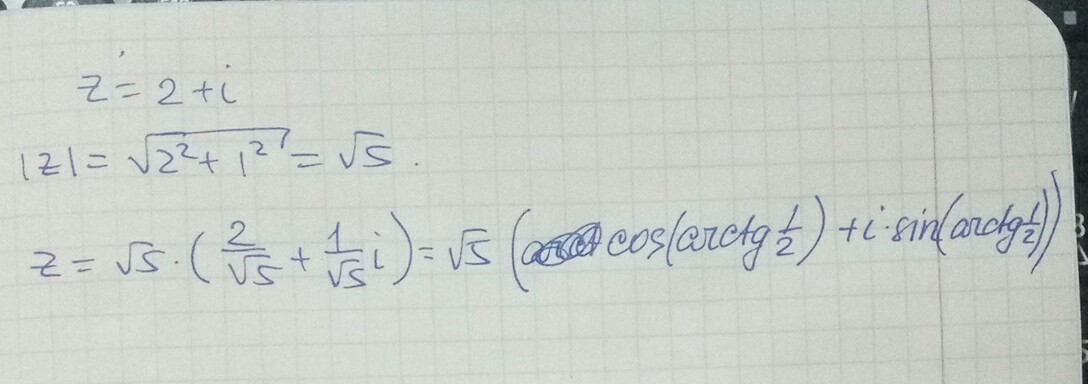 z = 2 + i
|z| = √(2² + 1²) = √5 .
z = √5 · (2/√5 + 1/√5 i) = √5 (cos(arctg 1/2) + i · sin(arctg 1/2))